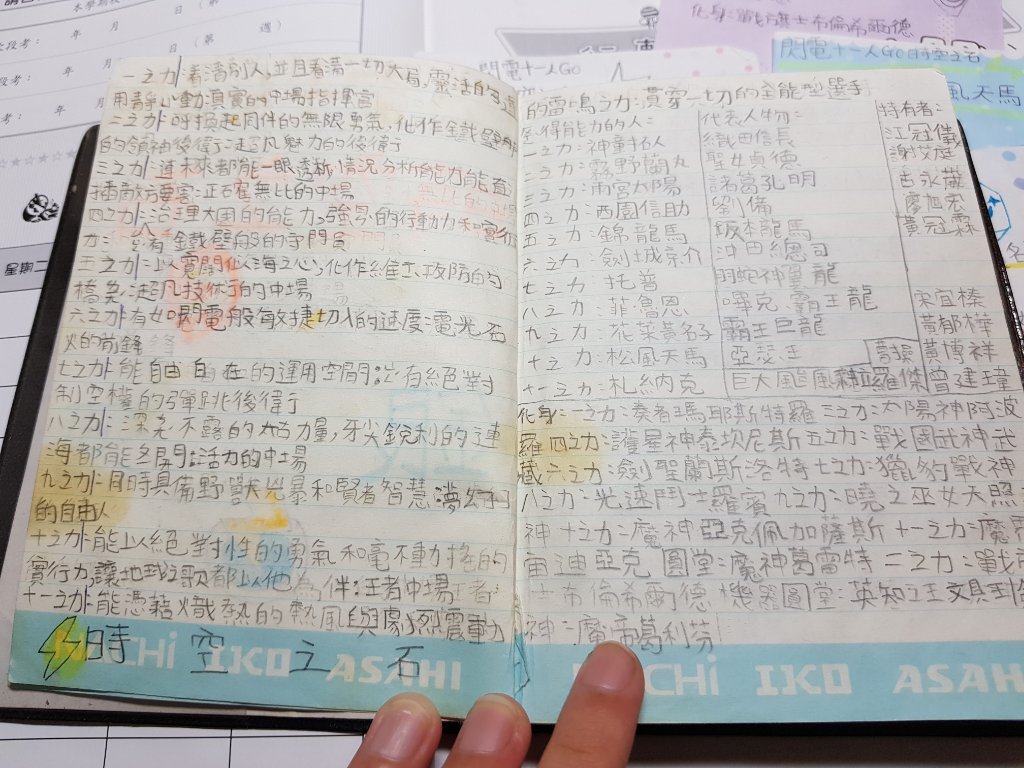 本學期校
年 月 日（第 週）
段考： 年 月
年 月 日（第
年 月
星期二
化身：戰乃騰士布倫希爾德
閃電十一人Go
閃電十一人GO時空之石
風天馬
一之力：看清別人,並且看清一切大局,靈活自
用靜心動真實的中場指揮官
二之力：呼換起同伴的無限勇氣,化作金鐵壁
的領袖後衛：超凡魅力的後衛
三之力：連未來都能一眼透析,情況分析能力能直
插敵方要害：正確無比的中場
四之力：治理大國的能力,強易的行動力和實行
力：必有金鐵壁般的守門員
五之力：以寬闊似海之心,化作維示攻防的
橋梁：超凡技術的中場
六之力有如閃電般敏捷切入的速度：電光石
火的前鋒
七之力：能自由自在的運用空間：必有絕對
制空權的彈跳後衛
八之力：深克不露的大古力量,牙尖銳利的連
海都能容易：活力的中場
九之力：同時具備野獸兇暴和賢者智慧：夢幻
的自由人
十之力：能以絕對性的勇氣和毫不動搖的
實行力讓地班該歌都以他為伴：王者中場
十一之力：能憑藉熾熱的熱風與劇烈震動
時空之石
HACHI IKO ASAHI
的雷鳴之力：貫穿一切的全能型選手
獲得能力的人： 代表人物： 持有者：
一之力：神童拓人 織田信長 江冠儀
二之力：霧野蘭丸 聖女貞德 謝艾庭
三之力：雨宮太陽 諸葛孔明 古永葳
四之力：西園信助 劉備 廖旭宏
五之力：錦龍馬 坂本龍馬 黃冠霖
六之力：劍城京介 沖田總司
七之力：托普 羽蛇神翼龍
八之力：菲魯恩 嗶克、霸王龍 宋宜榛
九之力：花菜黃名子 霸王巨龍 黃郁樺
十之力：松風天馬 亞瑟王 黃博祥
十一之力：札納克 巨大颱風 森拉羅傑 曾建瑋
化身：一之力：奏者瑪耶斯特羅 三之力：太陽神阿波
羅 四之力：護星神泰坎尼斯 五之力：戰國武神武
藏 六之力：劍聖蘭斯洛特 七之力：獵豹戰神
八之力：光速鬥士羅賓 九之力：曉之巫女大照
神 十之力：魔神亞克佩加薩斯 十一之力：魔
宙迪亞克 圓堂：魔神葛雷特 二之力：戰
士布倫希爾德 機器圓堂：英知之王文具到
神：魔帝葛利芬
HACHI IKO ASAH